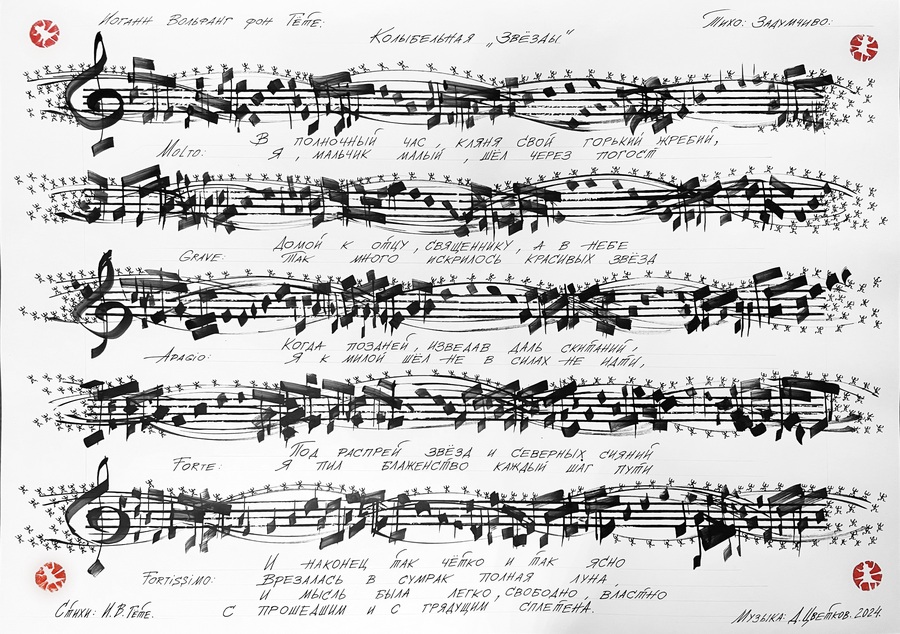 Иоганн Вольфанг фон Гёте:
Тихо: Задумчиво:
Колыбельная „Звёзды"
В полночный час, кляня свой горький жребий,
Molto: Я, мальчик малый, шёл через погост
Домой к отцу, священнику, а в небе
Grave: Так много искрилось красивых звёзд
Когда поздней, изведав даль скитаний,
Adagio: Я к милой шёл не в силах не идти,
Под распрей звёзд и северных сияний
Forte: Я пил блаженство каждый шаг пути
И наконец так чётко и так ясно
Fortissimo: Врезалась в сумрак полная луна,
И мысль была легко, свободно, властно
С прошедшим и с грядущим сплетена.
Стихи: И.В. Гёте.
Музыка: Д. Цветков. 2024.